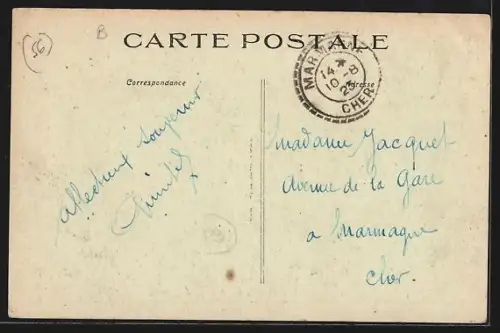 56
B
CARTE POSTALE
Correspondance
Adresse
MARMAGNE
14 *
10-8
23
CHER
affectueux souvenir
Madame Jacquet
Avenue de la Gare
a Marmagne
Cher.